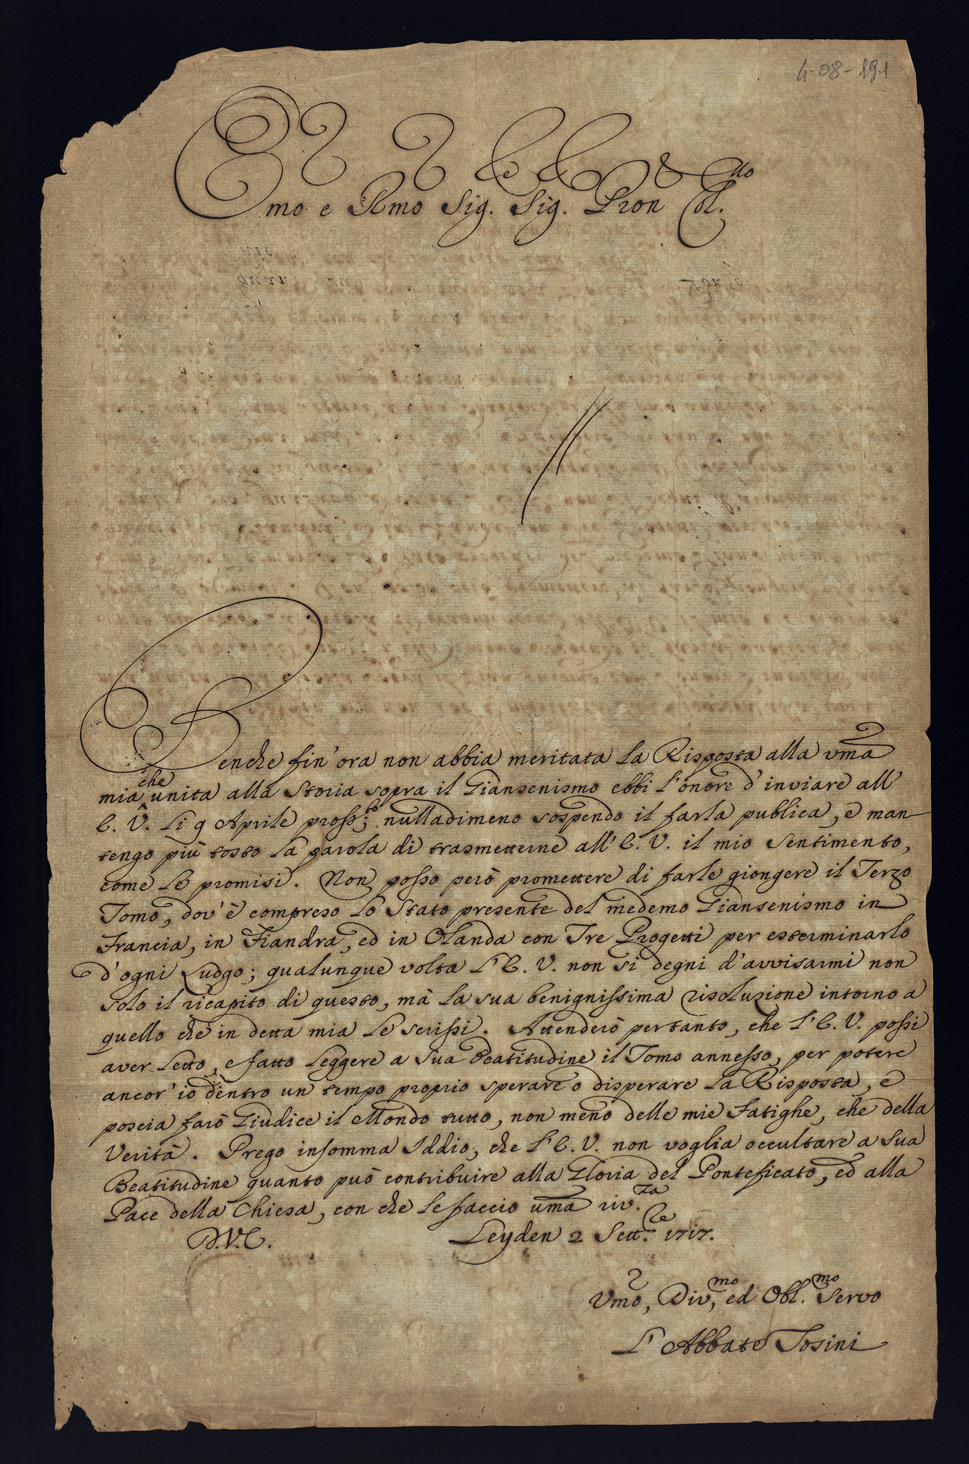 4-08-191
Emo e Rmo Sig. Sig. Pron Col.mo
Benche fin' ora non abbia meritata la Risposta alla uma
mia, che unita alla Storia sopra il Giansenismo ebbi l'onore d'inviare all'
E. V. li 9 Aprile pross:o; nulladimeno sospendo il farla publica, e man-
tengo più tosto la parola di trasmetterne all' E. V. il mio sentimento,
come le promisi. Non posso però promettere di farle giongere il Terzo
Tomo, dov'è compreso lo Stato presente del medemo Giansenismo in
Francia, in Fiandra, ed in Olanda con Tre Progetti per esterminarlo
d'ogni Luogo; qualunque volta l'E. V. non si degni d'avvisarmi non
solo il ricapito di questo, mà la sua benignissima risoluzione intorno a
quello che in detta mia le scrissi. Attenderò pertanto, che l'E. V. possi
aver letto, e fatto leggere a Sua Beatitudine il Tomo annesso, per potere
ancor' io dentro un tempo proprio sperare o disperare la Risposta, e
poscia farò Giudice il Mondo tutto, non meno delle mie Fatighe, che della
Verità. Prego insomma Iddio, che l'E. V. non voglia occultare a Sua
Beatitudine quanto può contribuire alla Gloria del Ponteficato, ed alla
Pace della Chiesa, con che le faccio uma riv.za
D.V.E.
Leyden 2 Sett.re 1717.
Vmo, Div.mo, ed Obl.mo Servo
L'Abbate Tosini